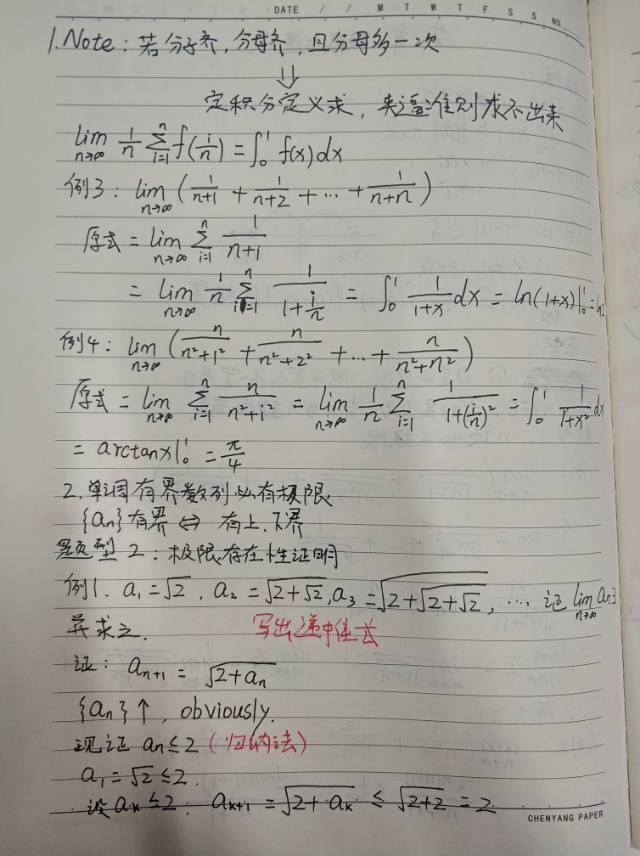 DATE / / M T W T F S S NO.
1. Note：若分子齐，分母齐，且分母多一次
⇓
定积分定义求，夹逼准则求不出来
lim n→∞ 1/n ∑ i=1 n f(i/n) = ∫₀¹ f(x)dx
例3：lim n→∞ (1/(n+1) + 1/(n+2) + ⋯ + 1/(n+n))
原式 = lim n→∞ ∑ i=1 n 1/(n+i)
= lim n→∞ 1/n ∑ i=1 n 1/(1+i/n) = ∫₀¹ 1/(1+x) dx = ln(1+x)|₀¹ = ln2
例4：lim n→∞ (n/(n²+1²) + n/(n²+2²) + ⋯ + n/(n²+n²))
原式 = lim n→∞ ∑ i=1 n n/(n²+i²) = lim n→∞ 1/n ∑ i=1 n 1/(1+(i/n)²) = ∫₀¹ 1/(1+x²) dx
= arctanx|₀¹ = π/4
2. 单调有界数列必有极限
{aₙ}有界 ⇔ 有上、下界
题型2：极限存在性证明
例1. a₁=√2，a₂=√(2+√2)，a₃=√(2+√(2+√2))，⋯ 证 lim n→∞ aₙ∃
并求之. 写出递推式
证：aₙ₊₁ = √(2+aₙ)
{aₙ}↑，obviously.
现证 aₙ≤2（归纳法）
a₁=√2≤2.
设aₖ≤2：aₖ₊₁ = √(2+aₖ) ≤ √(2+2) = 2
CHENYANG PAPER